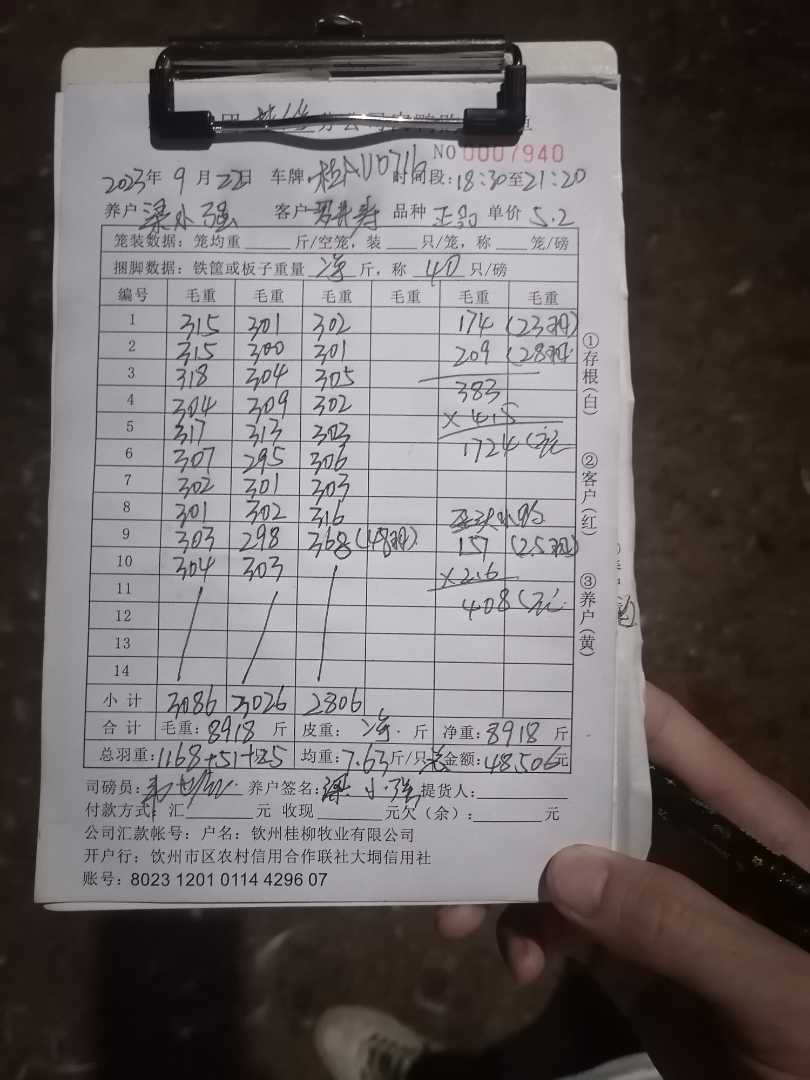 NO 0007940
2023年 9月22日 车牌:桂AU0716 时间段:18:30至21:20
养户 梁小强 客户 品种 正 单价 5.2
笼装数据:笼均重 斤/空笼,装 只/笼,称 笼/磅
捆脚数据:铁筐或板子重量 净 斤,称 40 只/磅
编号 毛重 毛重 毛重 毛重 毛重 毛重
1 315 301 302 174 (23羽)
2 315 300 301 209 (28羽)
3 318 304 305 383
4 304 309 302 ×4.5
5 317 313 303 1724(元)
6 307 295 306
7 302 301 303
8 301 302 316
9 303 298 368(48羽) 157 (25羽)
10 304 303 ×2.6
11 408(元)
12
13
14
小计 3086 3026 2806
合计 毛重:8918 斤 皮重:净 斤 净重:8918 斤
总羽重:1168+51+25 均重:7.63斤/只 总金额:48506元
司磅员: 养户签名:梁小强 提货人:
付款方式:汇 元 收现 元欠(余): 元
公司汇款帐号:户名:钦州桂柳牧业有限公司
开户行:钦州市区农村信用合作联社大垌信用社
账号:8023 1201 0114 4296 07
①存根(白)
②客户(红)
③养户(黄)